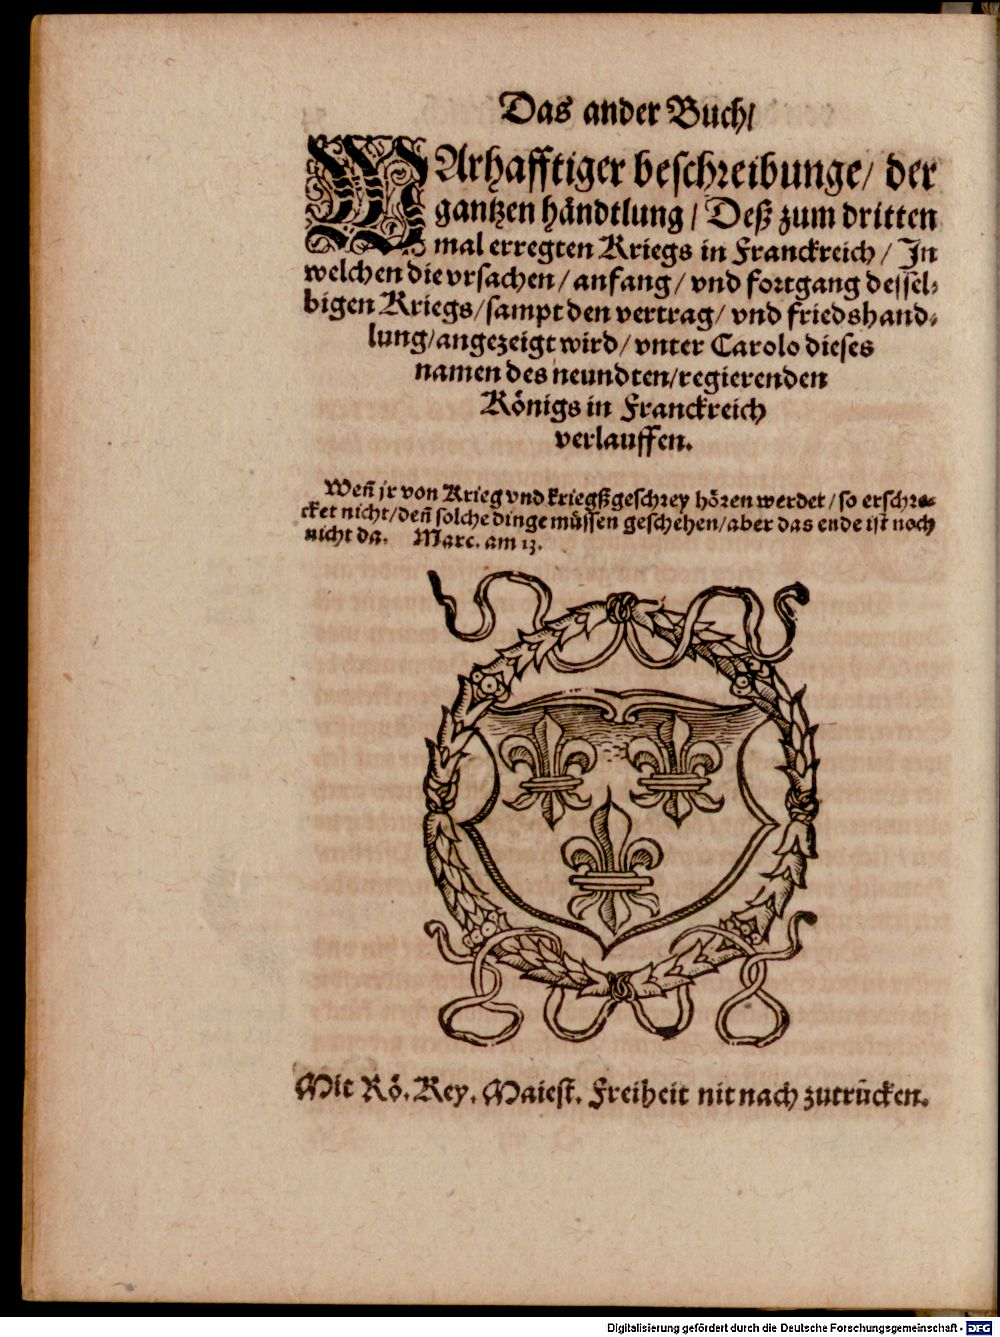 Das ander Buch/
WArhafftiger beschreibunge/ der
gantzen håndtlung/ Deß zum dritten
mal erregten Kriegs in Franckreich/ In
welchen die vrsachen/ anfang/ vnd fortgang dessel-
bigen Kriegs/ sampt den vertrag/ vnd friedshand-
lung/ angezeigt wird/ vnter Carolo dieses
namen des neundten/ regierenden
Kőnigs in Franckreich
verlauffen.
Weñ jr von Krieg vnd kriegßgeschrey hören werdet/ so erschre-
cket nicht/ deñ solche dinge müssen geschehen/ aber das ende ist noch
nicht da. Marc. am 13.
Mit Rö. Key. Maiest. Freiheit nit nach zutrücken.
Digitalisierung gefördert durch die Deutsche Forschungsgemeinschaft - DFG